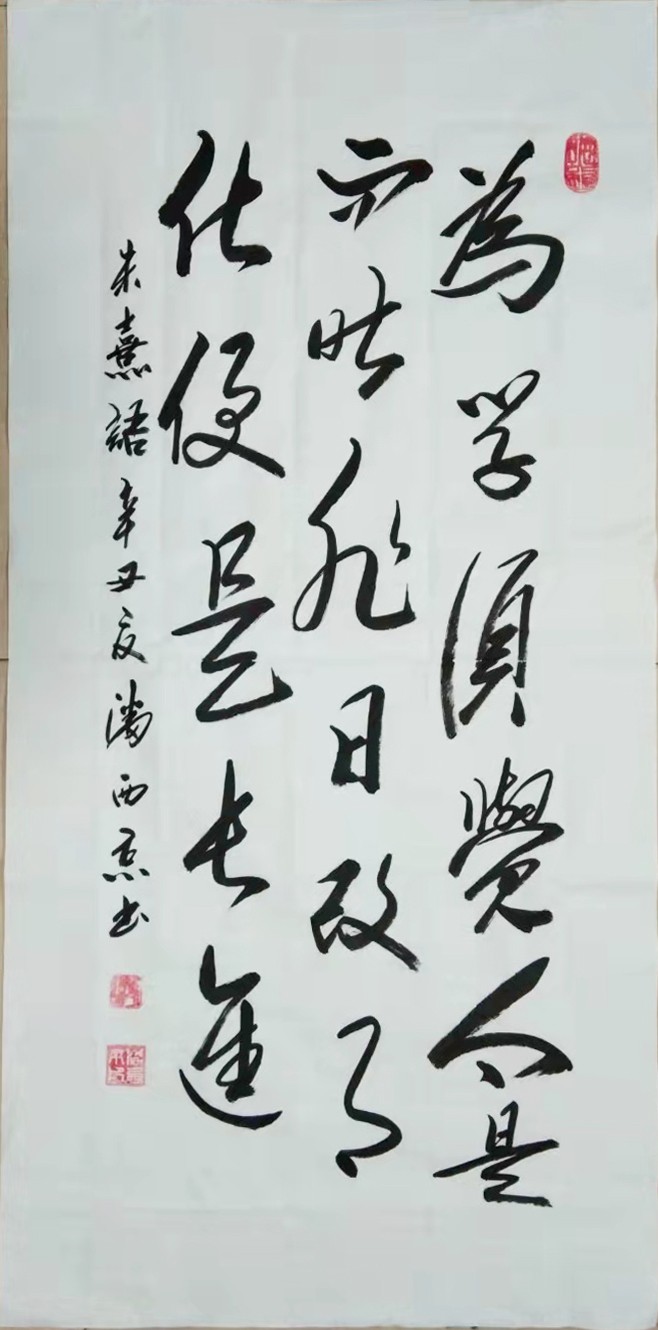 為学須覺今是
而昨非日改月
化便是长進
朱熹語辛丑夏潘西京书